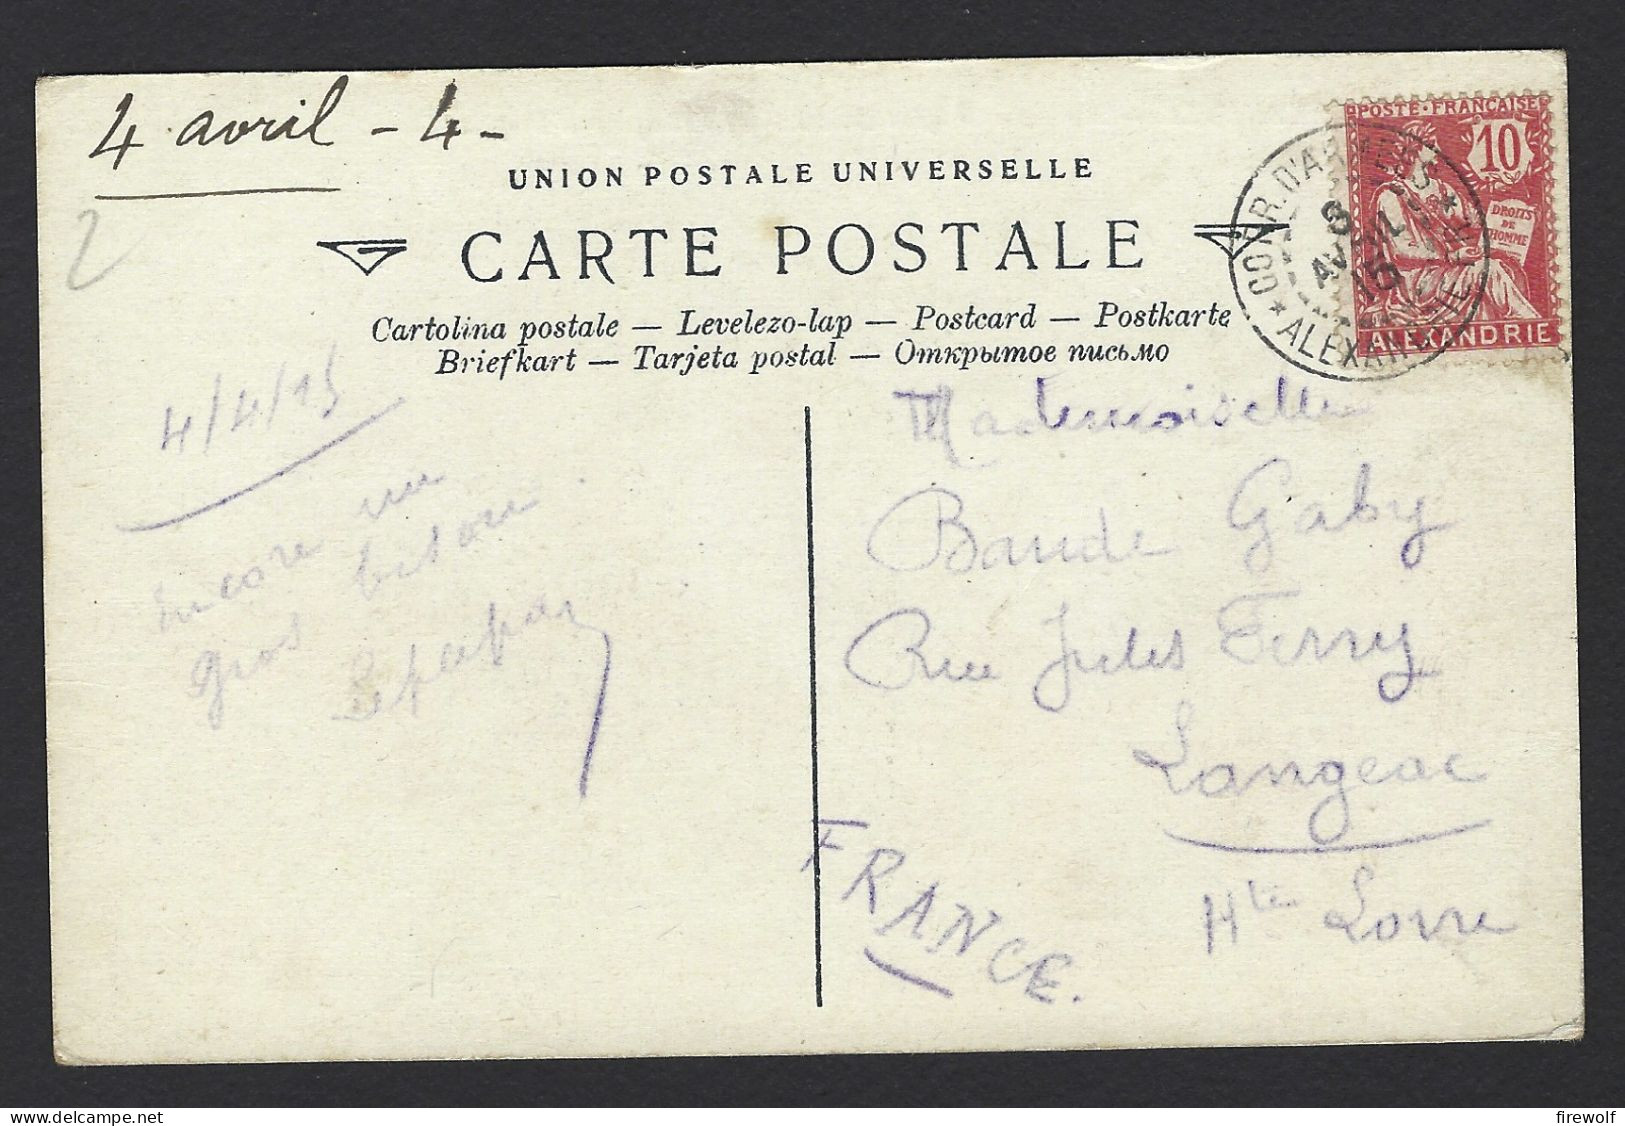 4 avril - 4 -
2
UNION POSTALE UNIVERSELLE
CARTE POSTALE
Cartolina postale — Levelezo-lap — Postcard — Postkarte
Briefkart — Tarjeta postal — Открытое письмо
POSTE · FRANÇAISE
10
DROITS
DE
L'HOMME
ALEXANDRIE
AVRIL
15
* ALEXANDRIE
4/4/15
Encore un
gros
Mademoiselle
Bande Gaby
Rue Jules Ferry
Langeac
Hte Loire
FRANCE.
delcampe.net
firewolf